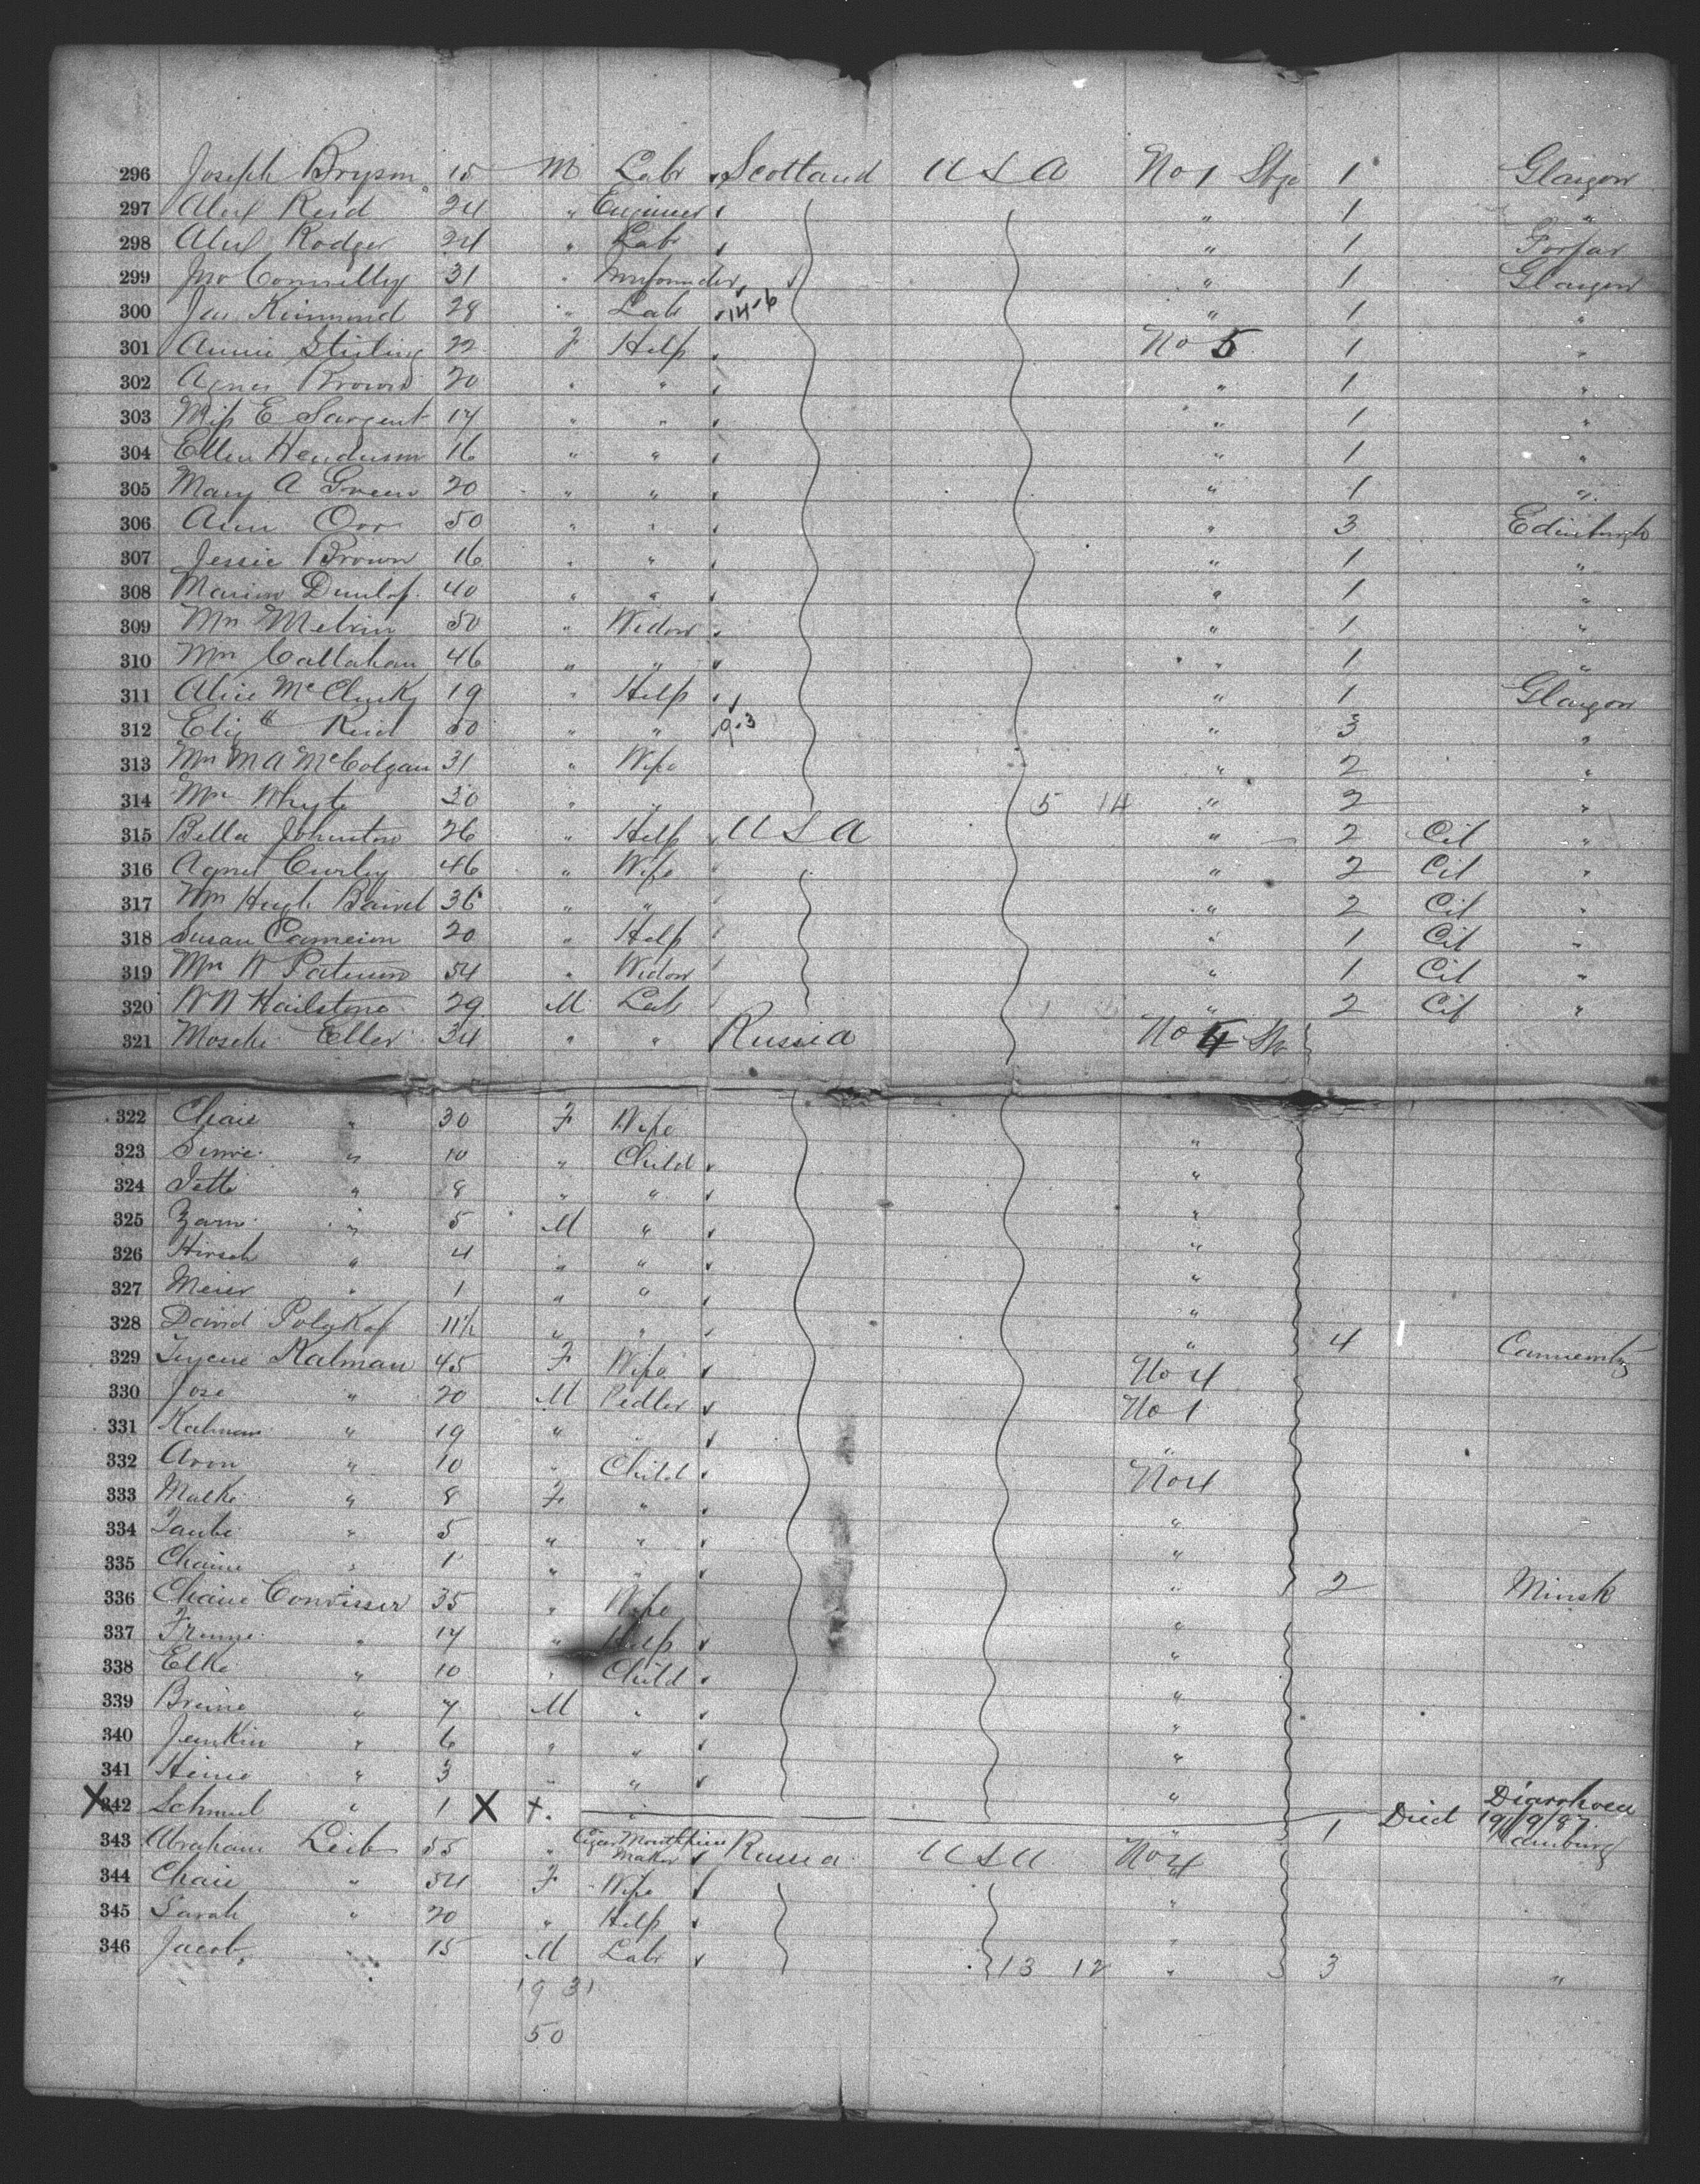 296 Joseph Bryson 15 M Labr Scotland U S A No 1 Stge 1 Glasgow
297 Alex Reid 24 " Engineer " 1 "
298 Alex Rodger 24 " Labr " 1 Forfar
299 Jno Connelly 31 " Ironfounder " 1 Glasgow
300 Jas Kinmond 28 " Labr 14-6 " 1 "
301 Annie Stirling 22 F Help No 5 1 "
302 Agnes Brown 20 " " " 1 "
303 Miss E Sargent 17 " " " 1 "
304 Ellen Henderson 16 " " " 1 "
305 Mary A Green 20 " " " 1 "
306 Ann Orr 50 " " " 3 Edinburgh
307 Jessie Brown 16 " " " 1 "
308 Marion Dunlop 40 " " " 1 "
309 Mrs Melvin 50 " Widow " 1 "
310 Mrs Callahan 46 " " " 1 "
311 Alice McClusky 19 " Help " 1 Glasgow
312 Elizth Reid 60 " " 9-3 " 3 "
313 Mrs M A McColgan 31 " Wife " 2 "
314 Mrs Whyte 30 " " 5 14 " 2 "
315 Bella Johnston 26 " Help U S A " 2 Cit "
316 Agnes Curley 46 " Wife " 2 Cit "
317 Mrs Hugh Baird 36 " " " 2 Cit "
318 Susan Cameron 20 " Help " 1 Cit "
319 Mrs W Paterson 54 " Widow " 1 Cit "
320 W N Hailstone 29 M Lab " 2 Cit "
321 Mosche Eller 34 " " Russia No 4 Stg
322 Chaie " 30 F Wife "
323 Simie " 10 " Child "
324 Jette " 8 " " "
325 " 5 M " "
326 Hirsch " 4 " " "
327 Meier " 1 " " "
328 David Polakof 11½ " " " 4
329 Kalman 45 F Wife No 4
330 Jose " 20 M Pedler No 1
331 Kalman " 19 " " "
332 Aron " 10 " Child No 4
333 Malke " 8 F " "
334 Taube " 5 " " "
335 Chaine " 1 " " " 2 Minsk
336 Chaie Convisser 35 " Wife "
337 Frume " 17 " Help "
338 Elke " 10 " Child "
339 Breine " 7 M " "
340 Jankin " 6 " " "
341 Heime " 3 " " "
X 342 Schmul " 1 X †. " " 1 Died Diarrhoea 19/9/87
343 Abraham Leib 55 " Cigar Mouthpiece Maker Russia U S A No 4 Hamburg
344 Chaie " 54 F Wife "
345 Sarah " 20 " Help "
346 Jacob " 15 M Labr 13 12 " 3 "
19 31
50